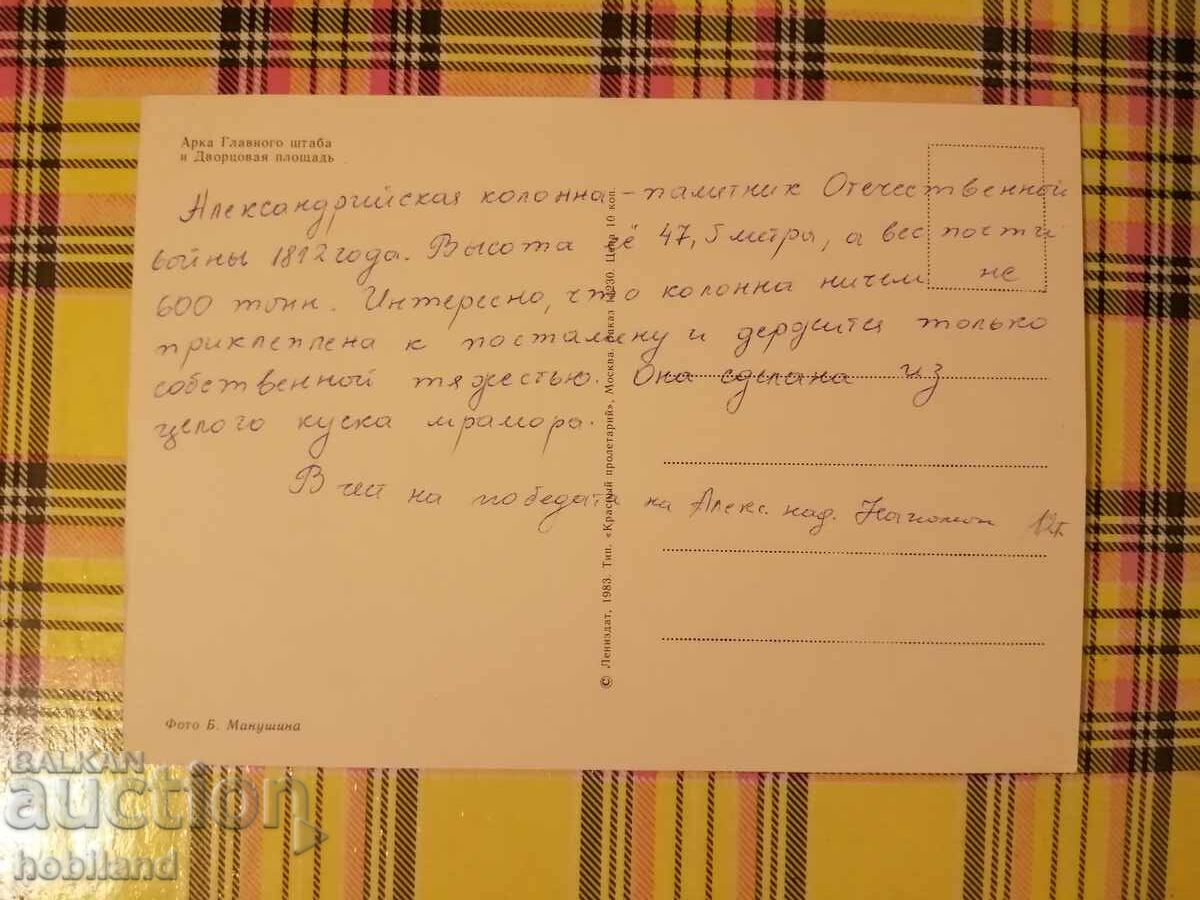 Арка Главного штаба
и Дворцовая площадь
Александрийская колонна – памитник Отечественной
войны 1812 года. Высота её 47,5 метра, а вес почти
600 тонн. Интересно, что колонна ничем не
приклеплена к посталену и держится только
собственной тяжестью. Она сделана из
целого куска мрамора.
В чей на победата на Алекс. над.
12г.
© Лениздат, 1983. Тип. «Красный пролетарий», Москва. Заказ Цена 10 коп.
Фото Б. Манушина
BALKAN
auction
hobiland